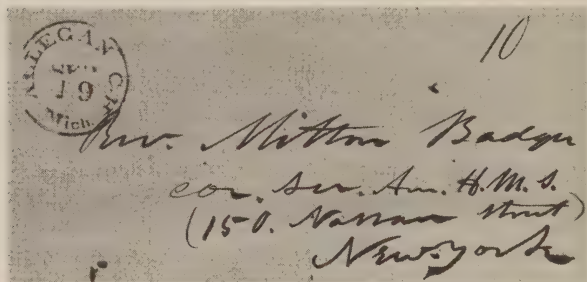 ALLEGAN C.H.
19
Mich.
10
Rev. Milton Badger
cor. Sec. Am. H. M. S.
(150. Nassau street)
New-York